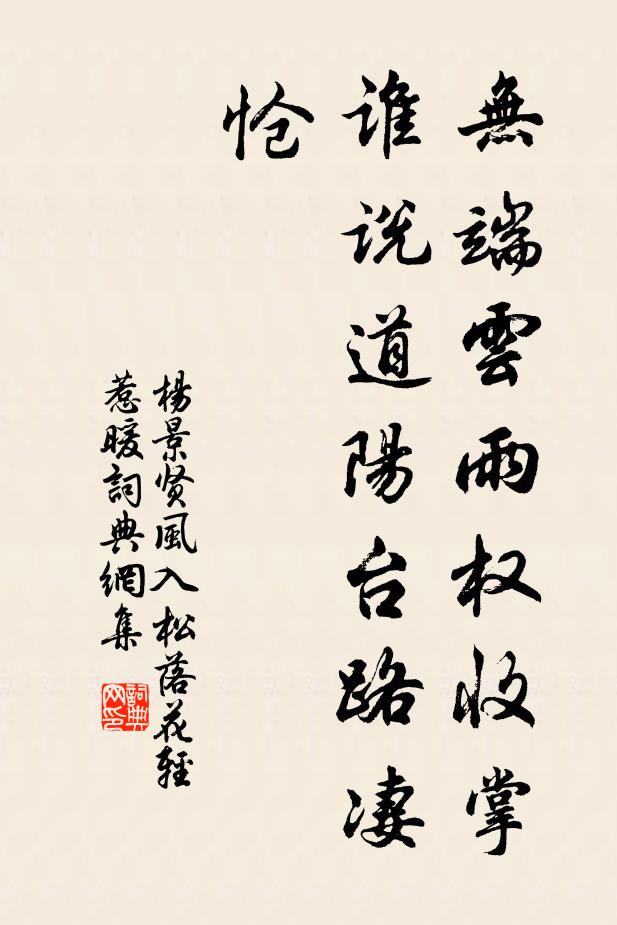 無端雲雨权收掌
谁说道陽台路凄
怆
楊景贤風入松落花輕
惹暖詞典網集
詞典
网印